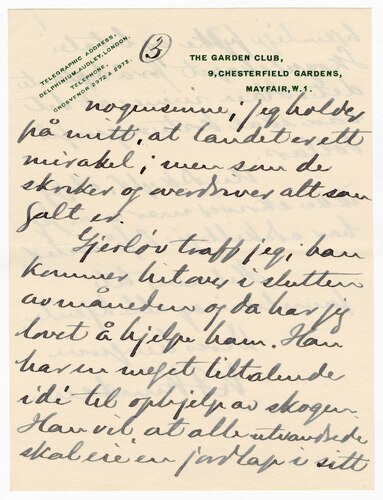 TELEGRAPHIC ADDRESS,
DELPHINIUM, AUDLEY, LONDON.
TELEPHONE,
GROSVENOR 2972 & 2973.
3
THE GARDEN CLUB,
9, CHESTERFIELD GARDENS,
MAYFAIR, W.1.
nogensinne; jeg holder
på mitt, at landet er ett
mirakel; men som de
skriker og overdriver alt som
galt er.
Gjerløv traff jeg; han
kommer hitover i slutten
av måneden og da har jeg
lovet å hjelpe ham. Han
har en meget tiltalende
idé til ophjelp av skogen.
Han vil at alle utvandrede
skal eie en jordlap i sitt